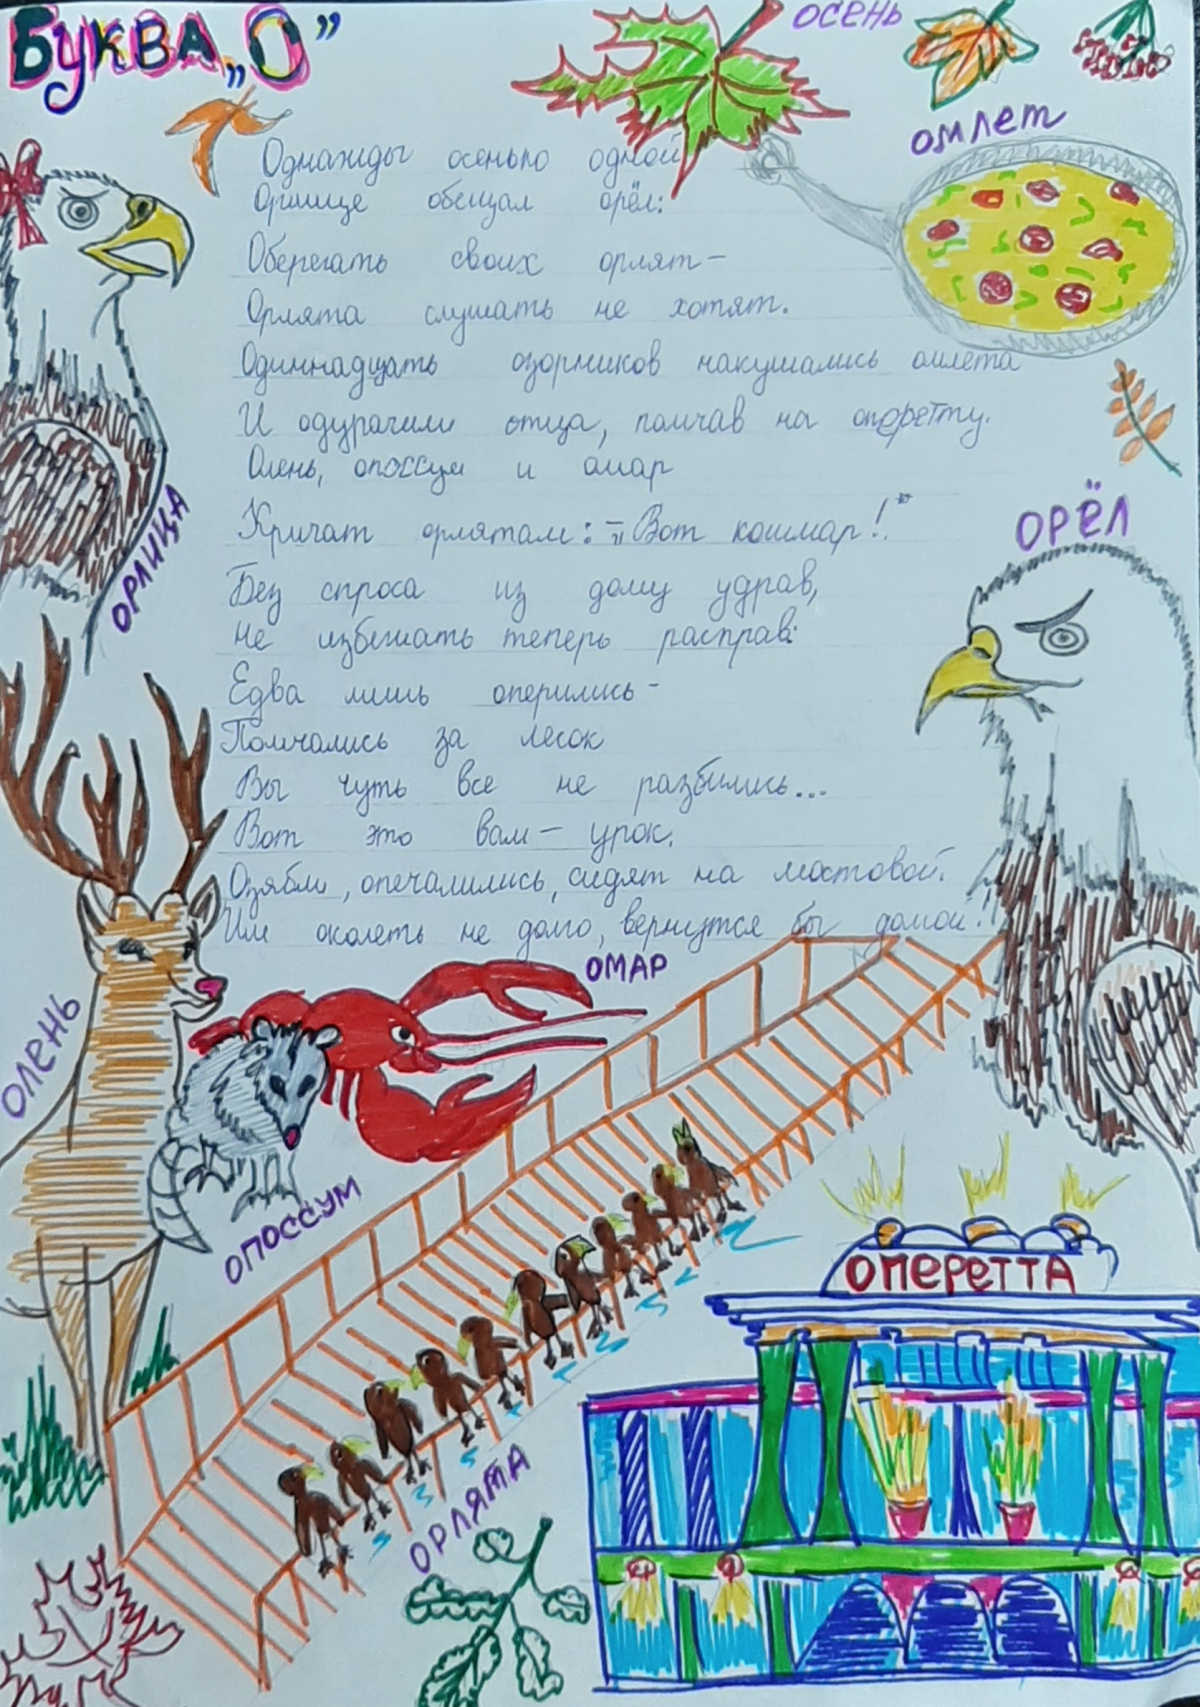 Буква „О”
ОСЕНЬ
ОМЛЕТ
Однажды осенью одной
Орлице обещал орёл:
Оберегать своих орлят –
Орлята слушать не хотят.
Одиннадцать озорников накушались омлета
И одурачили отца, помчав на оперетту.
Олень, опоссум и омар
Кричат орлятам: – „Вот кошмар!"
Без спроса из дому удрав,
Не избежать теперь расправ:
Едва лишь оперились –
Помчались за лесок
Вы чуть все не разбились...
Вот это вам – урок.
Озябли, опечалились, сидят на мостовой.
Им околеть не долго, вернутся бы домой.
ОРЛИЦА
ОРЁЛ
ОЛЕНЬ
ОМАР
ОПОССУМ
ОРЛЯТА
ОПЕРЕТТА